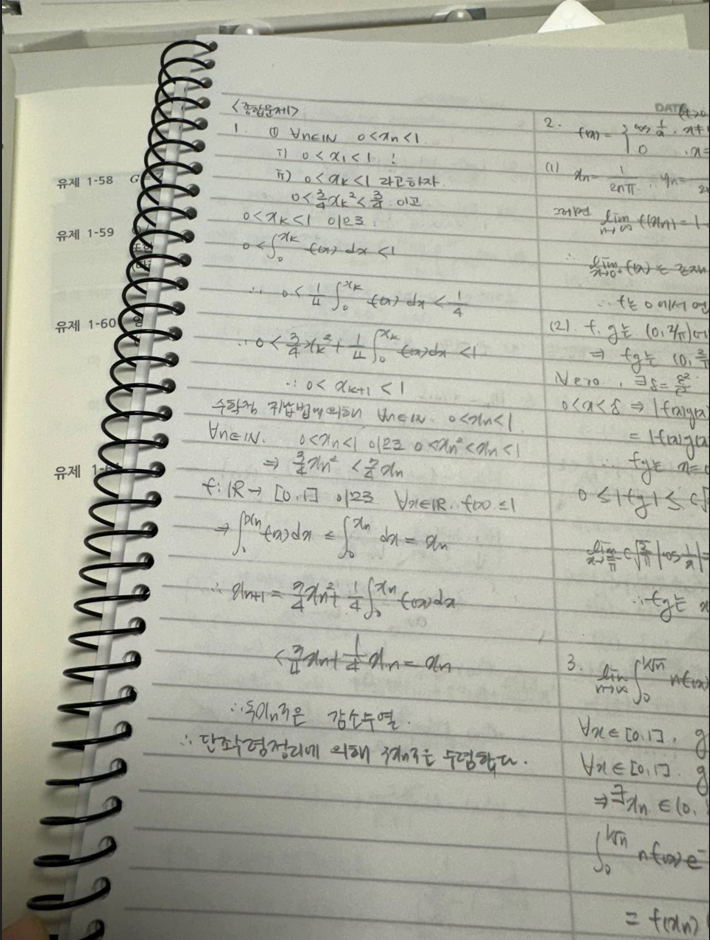 유제 1-58
유제 1-59
유제 1-60
유제 1-
<종합문제>
1. ① ∀n∈ℕ 0<xₙ<1
i) 0<x₁<1 !
ii) 0<xₖ<1 라고하자
0<3/4 xₖ²<3/4 이고
0<xₖ<1 이므로
0<∫₀^{xₖ} f(x) dx <1
∴ 0<1/4 ∫₀^{xₖ} f(x) dx < 1/4
∴ 0<3/4 xₖ² + 1/4 ∫₀^{xₖ} f(x)dx <1
∴ 0< xₖ₊₁ <1
수학적 귀납법에 의해 ∀n∈ℕ. 0<xₙ<1
∀n∈ℕ. 0<xₙ<1 이므로 0<xₙ²<xₙ<1
⇒ 3/4 xₙ² < 3/4 xₙ
f: ℝ→[0,1] 이므로 ∀x∈ℝ. f(x)≤1
⇒ ∫₀^{xₙ} f(x)dx ≤ ∫₀^{xₙ} dx = xₙ
∴ xₙ₊₁ = 3/4 xₙ² + 1/4 ∫₀^{xₙ} f(x)dx
< 3/4 xₙ + 1/4 xₙ = xₙ
∴ {xₙ}은 감소수열.
∴ 단조수렴정리에 의해 {xₙ}은 수렴한다.
DATE
2. f(x) = { cos 1/x , x≠
0 , x=
(1) xₙ = 1/2nπ , yₙ =
그러면 lim_{n→∞} f(xₙ) = 1
∴ lim_{x→0⁺} f(x)는 존재
∴ f는 0에서
(2). f, g는 (0, 2/π)에
⇒ fg는 (0, 2/π
∀ε>0, ∃δ=
0<x<δ ⇒ |f(x)g(x)
= |f(x)g(x)
∴ fg는 x=0
0 ≤ |fg| ≤
∴ fg는 x
3. lim_{n→∞} ∫₀ nf(x)
∀x∈[0,1], g
∀x∈[0,1]. g
⇒ ∃xₙ∈(0,
∫₀ nf(x) e⁻
= f(xₙ)